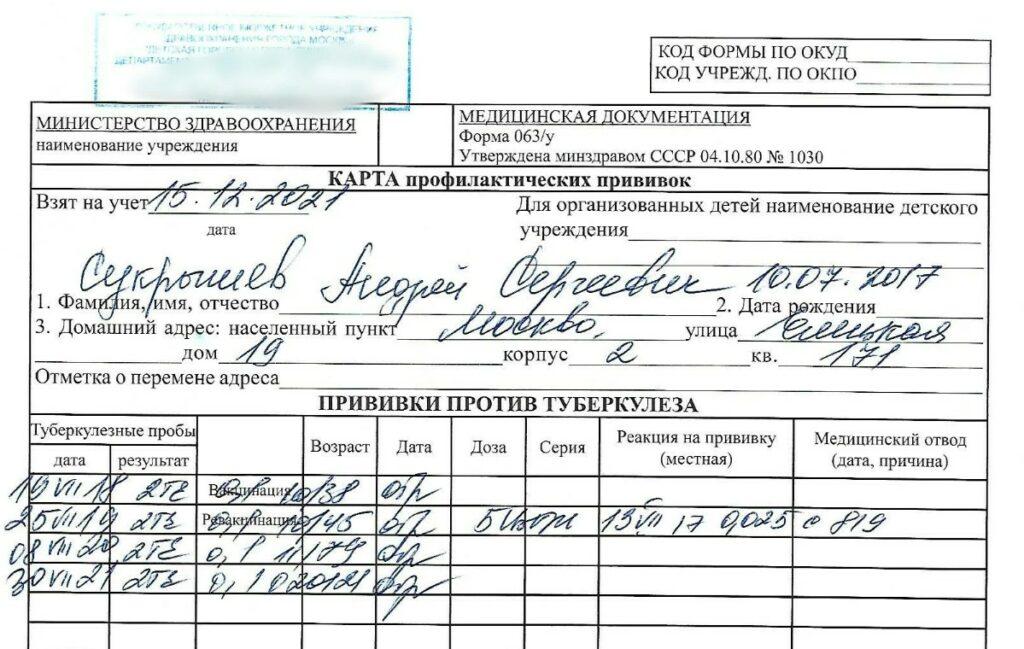 ГОСУДАРСТВЕННОЕ БЮДЖЕТНОЕ УЧРЕЖДЕНИЕ
ЗДРАВООХРАНЕНИЯ ГОРОДА МОСКВЫ
ДЕТСКАЯ
ДЕПАРТАМЕ
КОД ФОРМЫ ПО ОКУД
КОД УЧРЕЖД. ПО ОКПО
МИНИСТЕРСТВО ЗДРАВООХРАНЕНИЯ
наименование учреждения
МЕДИЦИНСКАЯ ДОКУМЕНТАЦИЯ
Форма 063/у
Утверждена минздравом СССР 04.10.80 № 1030
КАРТА профилактических прививок
Взят на учет 15.12.2021
дата
Для организованных детей наименование детского
учреждения
Сукрышев Андрей Сергеевич 10.07.2017
1. Фамилия, имя, отчество 2. Дата рождения
3. Домашний адрес: населенный пункт Москва, улица Елецкая
дом 19 корпус 2 кв. 171
Отметка о перемене адреса
ПРИВИВКИ ПРОТИВ ТУБЕРКУЛЕЗА
Туберкулезные пробы Возраст Дата Доза Серия Реакция на прививку (местная) Медицинский отвод (дата, причина)
дата результат
19 VII 18 2ТЕ Вакцинация 0,1 отр
25 VII 19 2ТЕ Ревакцинация 0,1 отр 13 VII 17 0,025 с 819
08 VII 20 2ТЕ 0,1 отр
30 VII 21 2ТЕ 0,1 отр